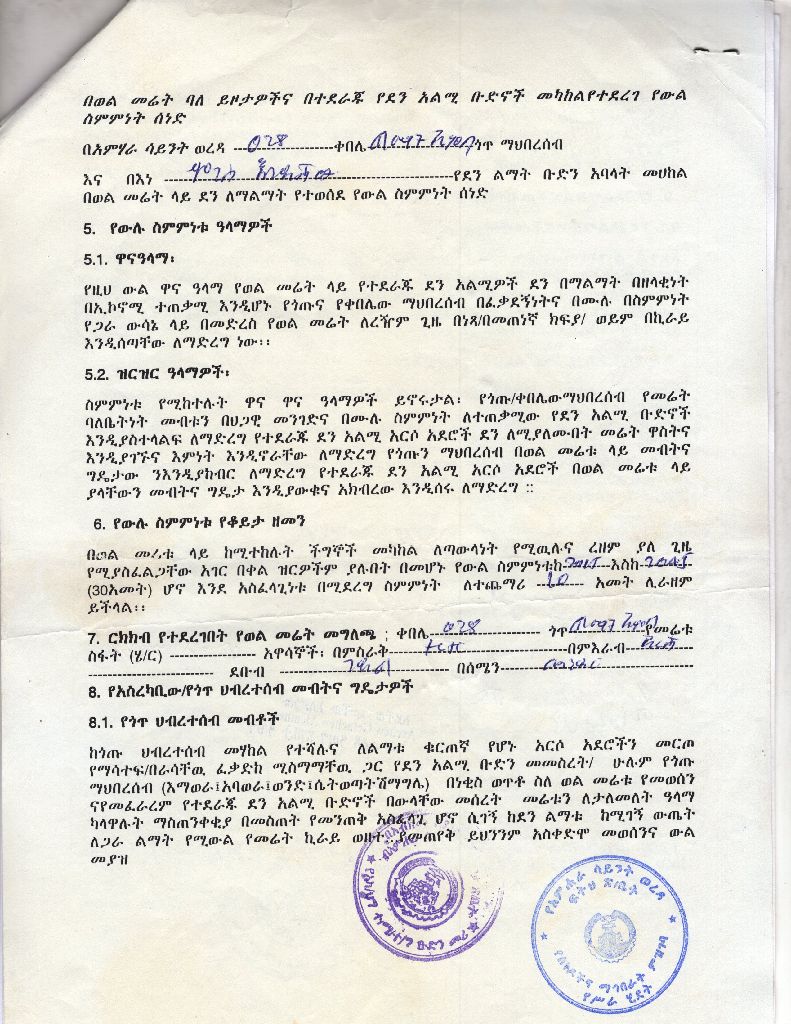 በወል መሬት ባለ ይዞታዎችና በተደራጁ የደን አልሚ ቡድኖች መካከልየተደረገ የውል
ስምምነት ሰነድ
በአምሃራ ሳይንት ወረዳ ---028---ቀበሌ ጎጥ ማህበረሰብ
እና በእነ ---የደን ልማት ቡድን አባላት መሀከል
በወል መሬት ላይ ደን ለማልማት የተወሰደ የውል ስምምነት ሰነድ
5. የውሉ ስምምነቱ ዓላማዎች
5.1. ዋናዓላማ፡
የዚህ ውል ዋና ዓላማ የወል መሬት ላይ የተደራጁ ደን አልሚዎች ደን በማልማት በዘላቂነት
በኢኮኖሚ ተጠቃሚ እንዲሆኑ የጎጡና የቀበሌው ማህበረሰብ በፈቃደኝነትና በሙሉ በስምምነት
የጋራ ውሳኔ ላይ በመድረስ የወል መሬት ለረዥም ጊዜ በነጻ/በመጠነኛ ክፍያ/ ወይም በኪራይ
እንዲሰጣቸው ለማድረግ ነው፡፡
5.2. ዝርዝር ዓላማዎች፡
ስምምነቱ የሚከተሉት ዋና ዋና ዓላማዎች ይኖሩታል፡ የጎጡ/ቀበሌውማህበረሰብ የመሬት
ባለቤትነት መብቱን በህጋዊ መንገድና በሙሉ ስምምነት ለተጠቃሚው የደን አልሚ ቡድኖች
እንዲያስተላልፍ ለማድረግ የተደራጁ ደን አልሚ አርሶ አደሮች ደን ለሚያለሙበት መሬት ዋስትና
እንዲያገኙና እምነት እንዲኖራቸው ለማድረግ የጎጡን ማህበረሰብ በወል መሬቱ ላይ መብትና
ግዴታው ንእንዲያከብር ለማድረግ የተደራጁ ደን አልሚ አርሶ አደሮች በወል መሬቱ ላይ
ያላቸውን መብትና ግዴታ እንዲያውቁና አክብረው እንዲሰሩ ለማድረግ ::
6. የውሉ ስምምነቱ የቆይታ ዘመን
በወል መሬቱ ላይ ከሚተከሉት ችግኞች መካከል ለጣውላነት የሚዉሉና ረዘም ያለ ጊዜ
የሚያስፈልጋቸው አገር በቀል ዝርዎችም ያሉበት በመሆኑ የውል ስምምነቱከ---እስከ
(30አመት) ሆኖ እንደ አስፈላጊነቱ በሚደረግ ስምምነት ለተጨማሪ --10-- አመት ሊራዘም
ይችላል፡፡
7. ርክክብ የተደረገበት የወል መሬት መግለጫ ; ቀበሌ--028--- ጎጥ የመሬቱ
ስፋት (ሄ/ር) --- አዋሳኞች፡ በምስራቅ---በምእራብ---
--- ደቡብ --- በሰሜን---
8. የአስረካቢው/የጎጥ ህብረተሰብ መብትና ግዴታዎች
8.1. የጎጥ ህብረተሰብ መብቶች
ከጎጡ ህብረተሰብ መሃከል የተሻሉና ለልማቱ ቁርጠኛ የሆኑ አርሶ አደሮችን መርጦ
የማሳተፍ/በራሳቸዉ ፈቃድከ ሚስማማቸዉ ጋር የደን አልሚ ቡድን መመስረት/ ሁሉም የጎጡ
ማህበረሰብ (እማወራ፤አባወራ፤ወንድ፤ሴትወጣት፣ሽማግሌ) በነቂስ ወጥቶ ስለ ወል መሬቱ የመወሰን
ናየመፈራረም የተደራጁ ደን አልሚ ቡድኖች በውላቸው መሰረት መሬቱን ለታለመለት ዓላማ
ካላዋሉት ማስጠንቀቂያ በመስጠት የመንጠቅ አስፈላጊ ሆኖ ሲገኝ ከደን ልማቱ ከሚገኝ ውጤት
ለጋራ ልማት የሚውል የመሬት ኪራይ ወዘተ የመጠየቅ ይህንንም አስቀድሞ መወሰንና ውል
መያዝ
የአምሐራ ሳይንት ወረዳ
ፍትህ ጽ/ቤት